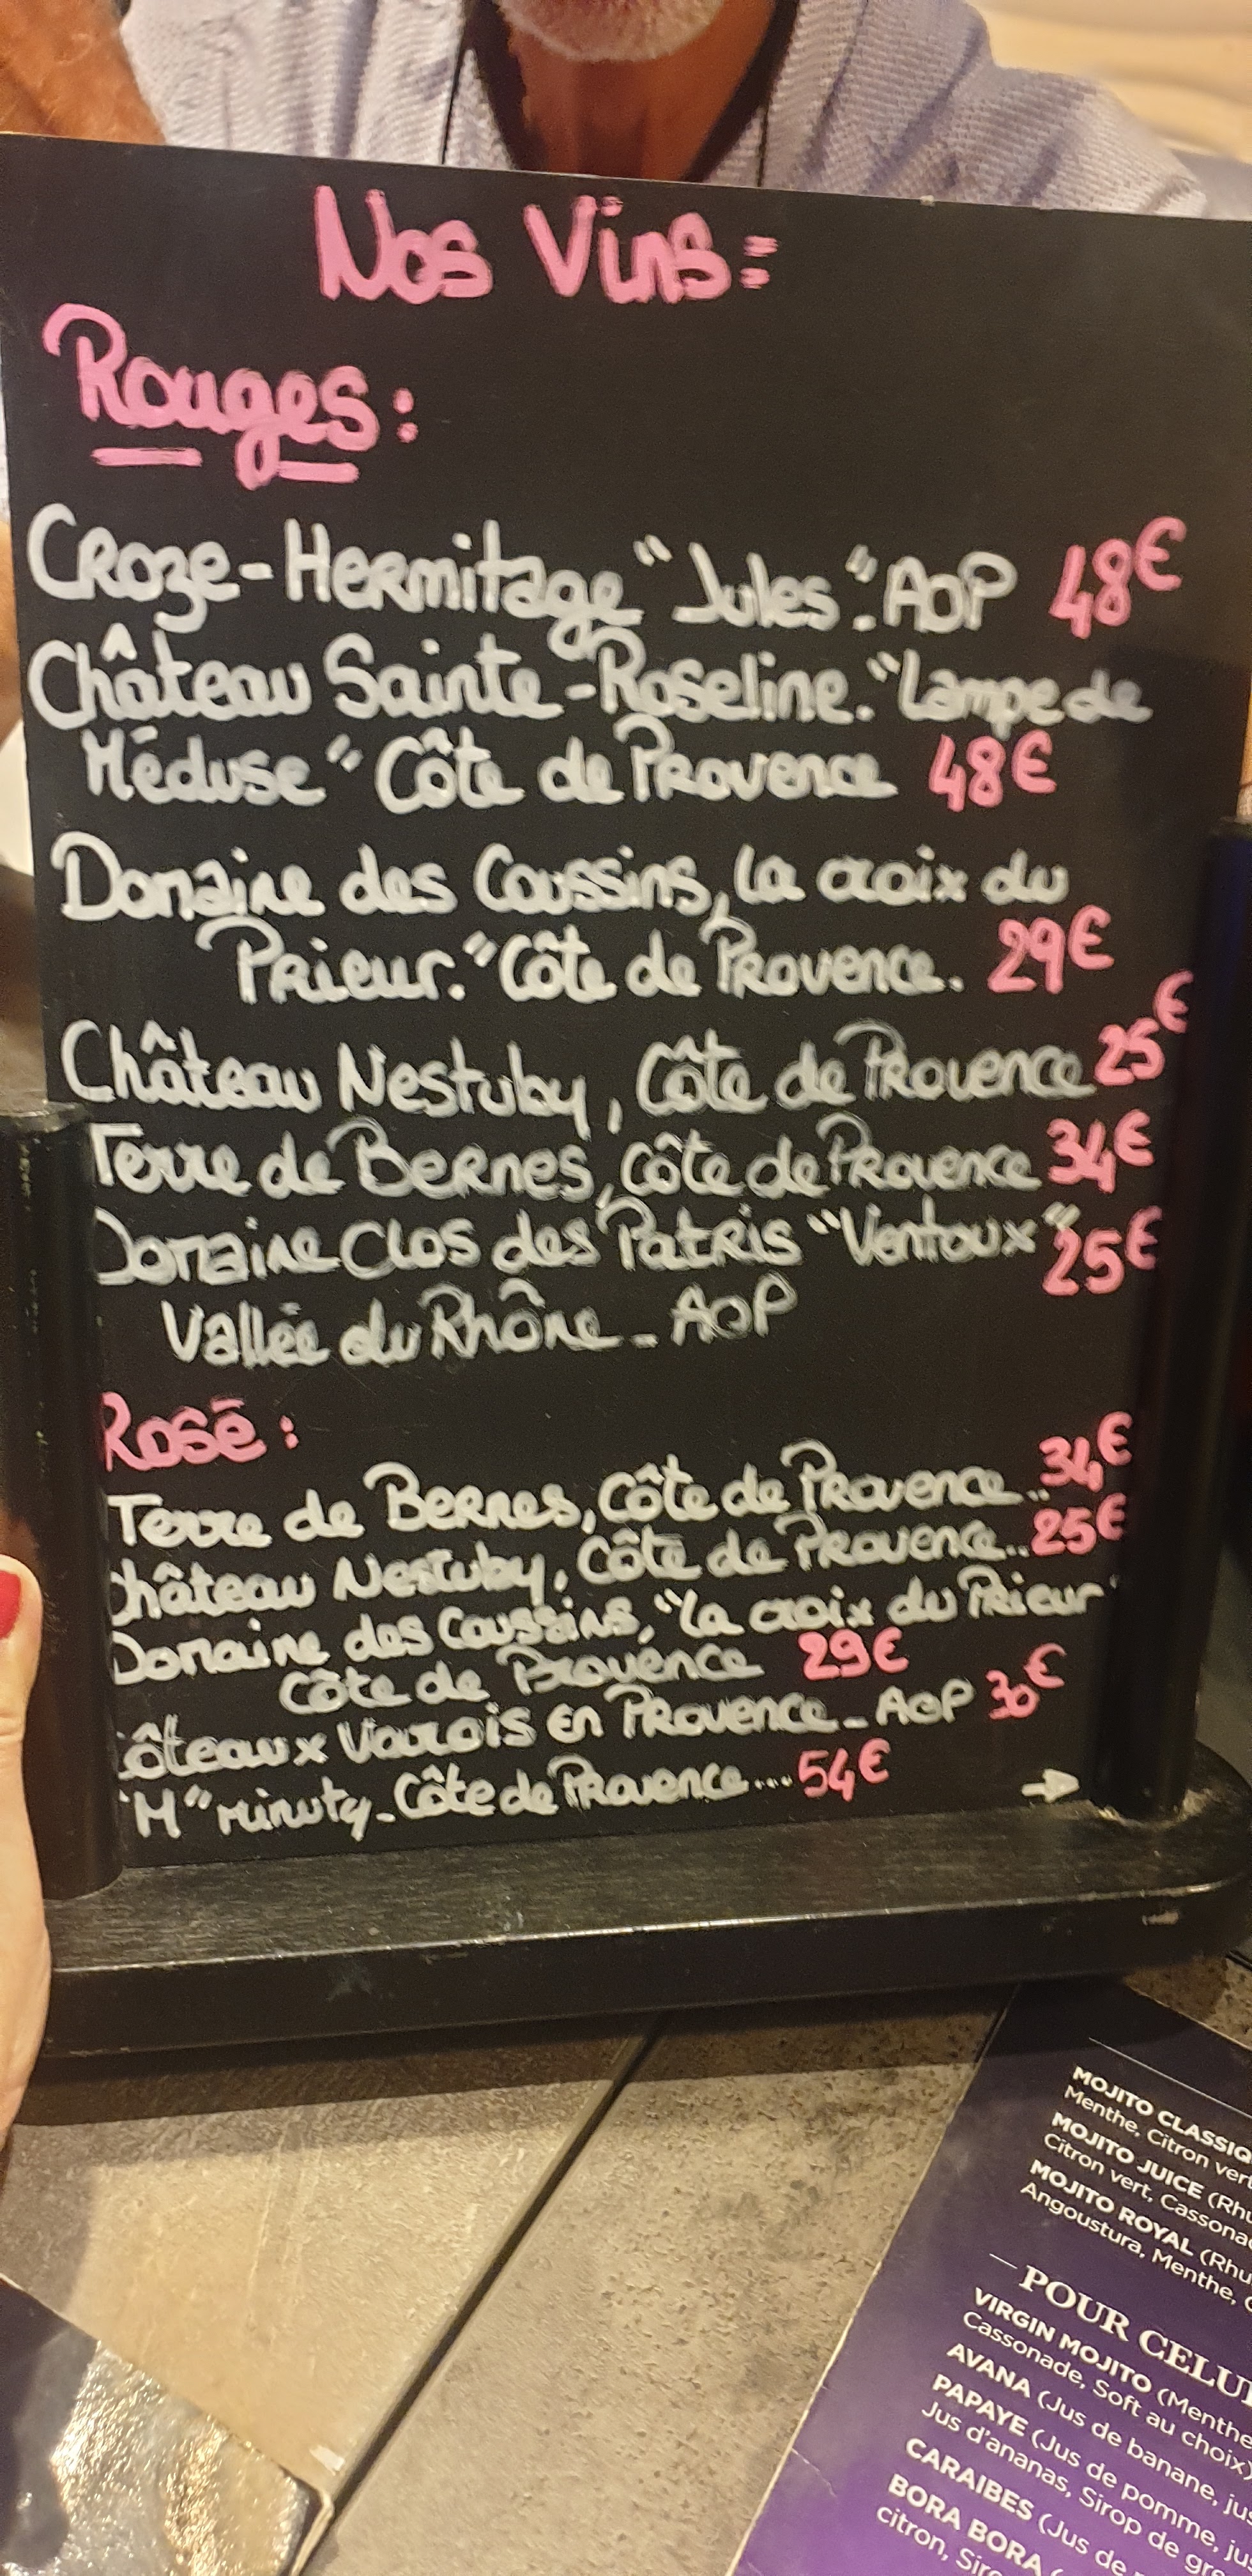 Nos Vins:
Rouges:
Croze-Hermitage "Jules". AOP 48€
Château Sainte-Roseline. "Lampe de
Méduse" Côte de Provence 48€
Domaine des Coussins, la croix du
Prieur." Côte de Provence. 29€
Château Nestuby, Côte de Provence 25€
Terre de Bernes, Côte de Provence 34€
Domaine Clos des Patris "Ventoux" 25€
Vallée du Rhône - AOP
Rosé:
Terre de Bernes, Côte de Provence.. 34€
château Nestuby, Côte de Provence.. 25€
Domaine des Coussins, "la croix du Prieur"
Côte de Provence 29€
ôteaux Varois en Provence - AOP 30€
"M" minuty - Côte de Provence... 54€
→
MOJITO CLASSIQ
Menthe, Citron vert
MOJITO JUICE (Rhu
Citron vert, Cassona
MOJITO ROYAL (Rhu
Angoustura, Menthe, C
POUR CELUI
VIRGIN MOJITO (Menthe
Cassonade, Soft au choix)
AVANA (Jus de banane, jus
PAPAYE (Jus de pomme, jus
Jus d'ananas, Sirop de gre
CARAIBES (Jus de
BORA BORA (
citron, Siro